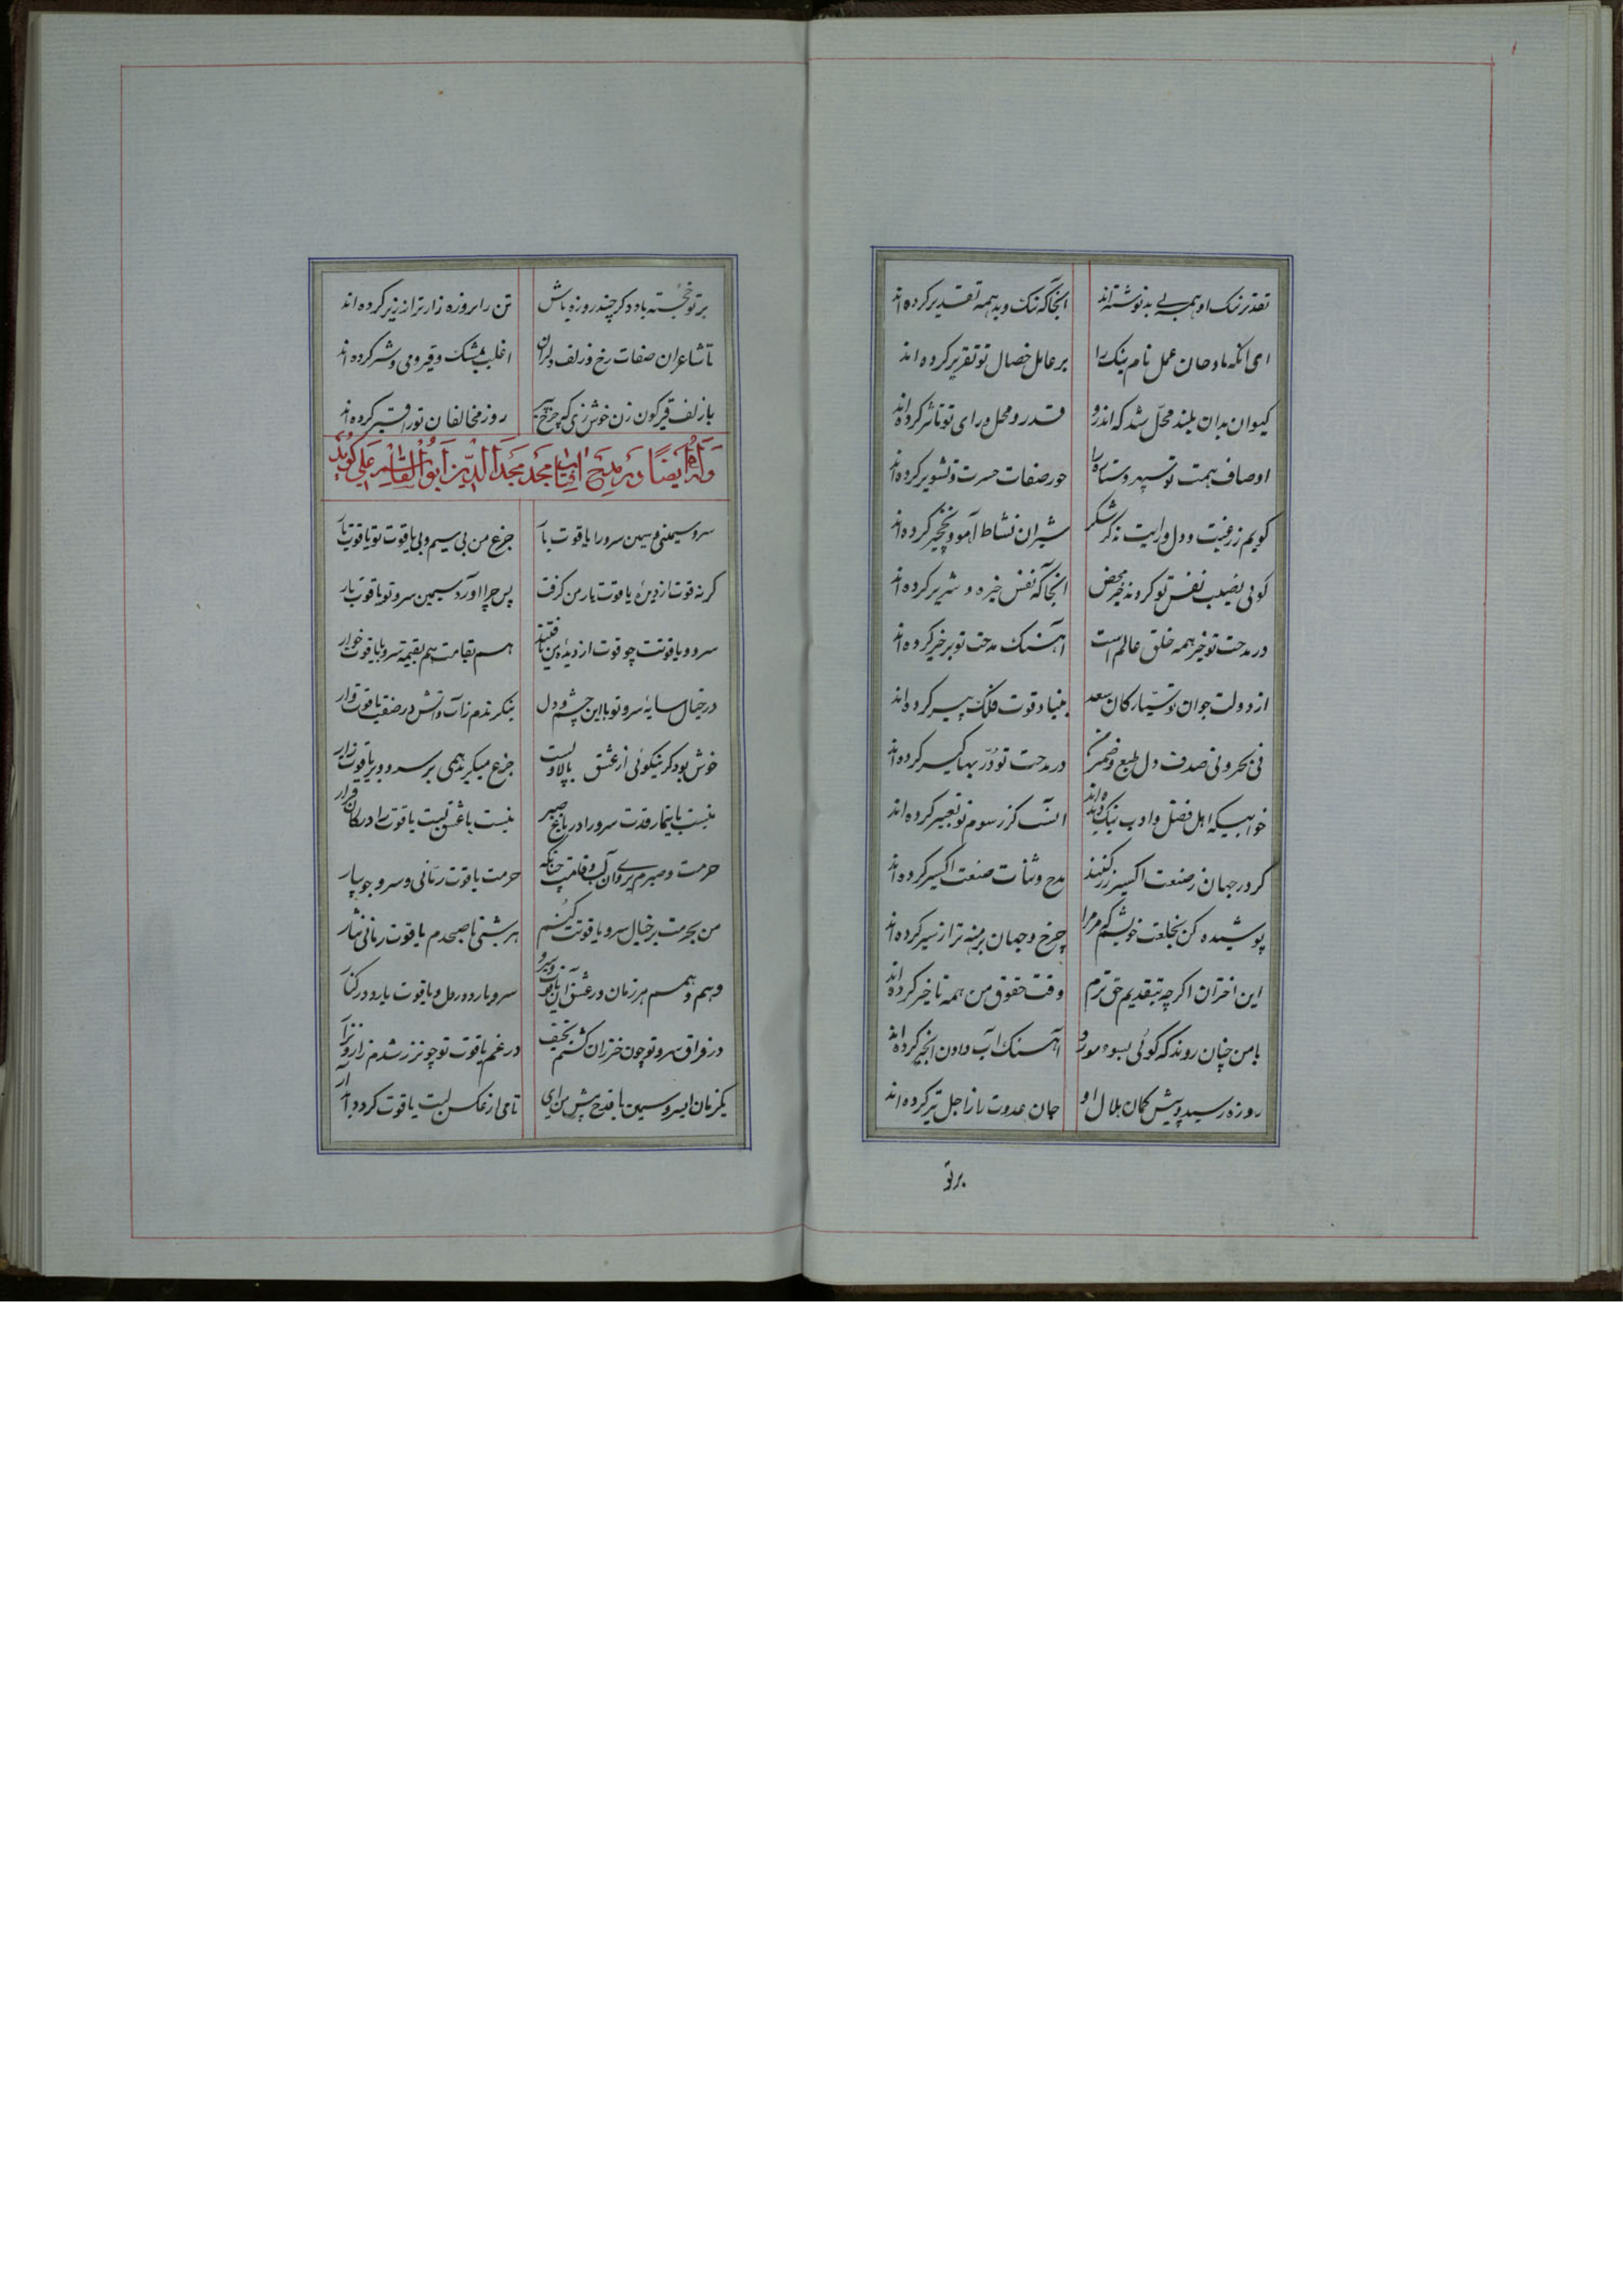 تقدیر نیک او همه بی بد نوشته‌اند آنجا که نیک و بد همه تقدیر کرده‌اند
ای آنکه مادحان عمل نام نیک را بر عامل خصال تو تقریر کرده‌اند
کیوان بدان بلند محل شد که اندرو قدر و محل و رای تو تاثیر کرده‌اند
اوصاف همت تو سپهر و ستاره را حور صفات حسرت و تشویر کرده‌اند
کویم زرغبت و دل ورایت نه کر شکر شیران نشاط آهو و نخجیر کرده‌اند
کوئی نصیب نفس تو کردند خیر محض آنجا که نفس خیره و شریر کرده‌اند
در مدحت تو خیر همه خلق عالم است آهنک مدحت تو بر خیر کرده‌اند
از دولت جوان تو سیارکان سعد بنیاد قوت فلک پیر کرده‌اند
نی بحر و نی صدف دل و طبع و ضمیر در مدحت تو در بها کسیر کرده‌اند
خوابیکه اهل فضل و ادب نیک دیده‌اند آنست کز رسوم تو تعبیر کرده‌اند
کر در جهان ز صنعت اکسیر زر کنند مدح و ثنات صنعت اکسیر کرده‌اند
پوشیده کن بخلعت خویشم که مر مرا چرخ و جهان برهنه‌تر از سیر کرده‌اند
این اختران اکرچه بتقدیم حق ترم وقت حقوق من همه تاخیر کرده‌اند
با من چنان روند که کوئی بسوء مورد آهنک آب دادن انجیر کرده‌اند
روزه رسید و پیش کمان هلال او جان عدوت را ز اجل تیر کرده‌اند
بر تو
بر تو خجسته باد و کر چند روزه باش تن را بروزه زارتر از زیر کرده‌اند
تا شاعران صفات رخ و زلف دلبران اغلب بمشک و قیر و می و شیر کرده‌اند
با زلف قیرکون زن خوش زی که چرخ پیر روز مخالفان تو را قیر کرده‌اند
وله ایضا در مدح امجد مجد الدین ابو القاسم علی کوید
سرو سیمینی و سیمین سرو را یاقوت بار جزع من بی سیم و بی یاقوت تو یاقوت بار
کر نه قوت از دیدهٔ یاقوت بار من کرفت پس چرا آورد سیمین سرو تو یاقوت بار
سرو و یاقوتت چو قوت از دیدهٔ من یافتند هم بقامت هم بقیمت سرو با یاقوت خوار
در خیال سایهٔ سرو تو با این چشم و دل بنکرندم ز آب و آتش در صفت یاقوت وار
خوش بود کر نیکوئی از عشق بالا و لبت جزع میکرید همی بر سرو و بر یاقوت زار
نیست با تیمار قدت سرو را در باغ صبر نیست با عشق لبت یاقوت را در کان قرار
حرمت و صبرم بروی آن لب و قامت چنانکه حرمت یاقوت رمانی و سرو جویبار
من بحرمت بر خیال سرو یاقوتت کنم هر شبی تا صبحدم یاقوت رمانی نثار
وهم و همم هر زمان در عشق آن یاقوت و سرو سرو بارد در دل و یاقوت بارد در کنار
در فراق سرو تو چون خیزران کشتم نحیف در غم یاقوت تو چون زر شدم زار و نزار
یکزمان ای سرو سیمین با قدح پیش من آی تا می از عکس لبت یاقوت کردد آبدار